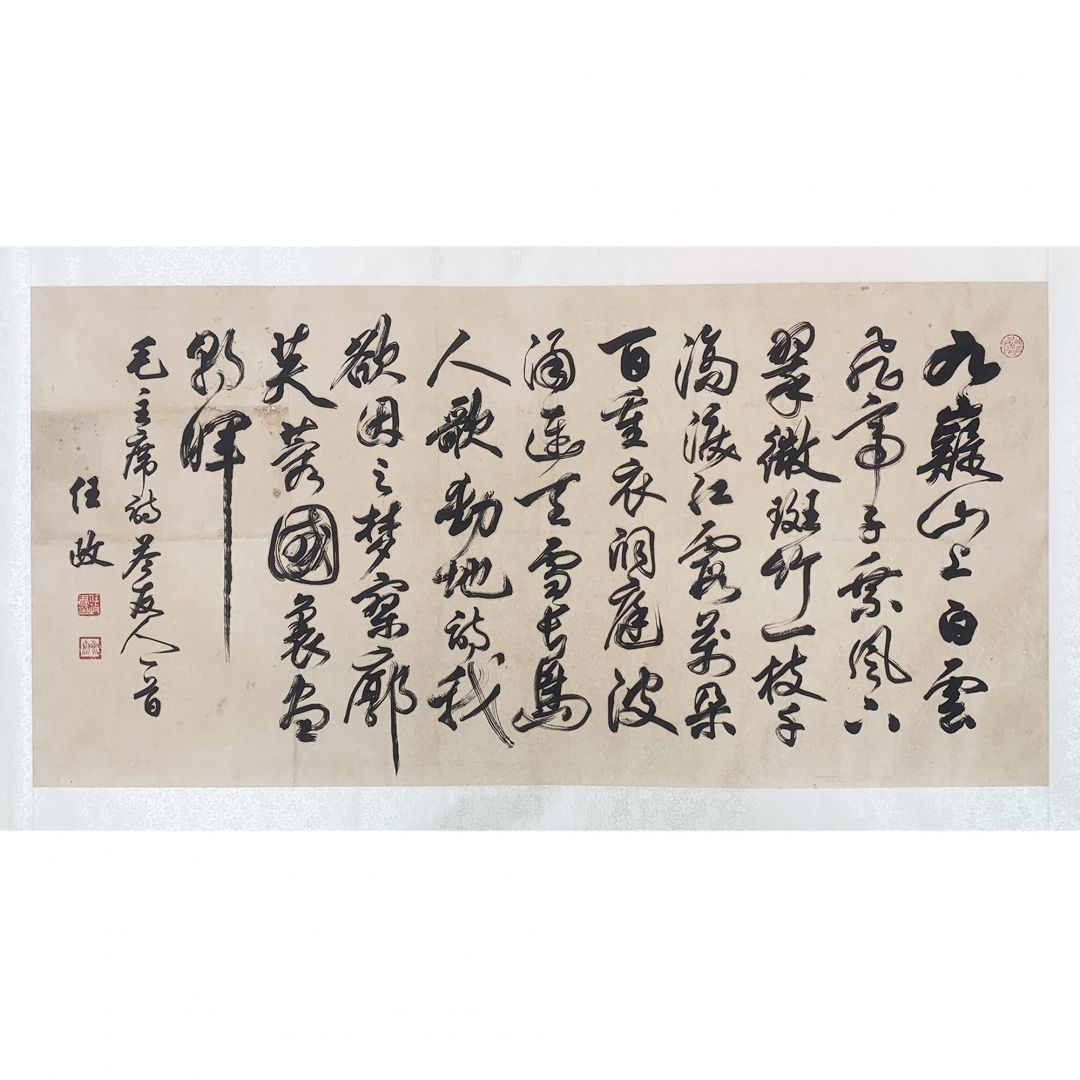 九嶷山上白雲
飛帝子乘風下
翠微斑竹一枝千
滴淚紅霞萬朵
百重衣洞庭波
涌連天雪長島
人歌動地詩我
欲因之梦寥廓
芙蓉國裏盡
朝暉
毛主席詩答友人一首
任政